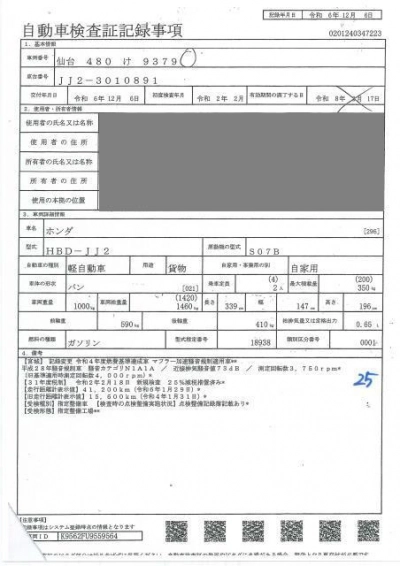 記録年月日 令和 6年12月 6日
自動車検査証記録事項
0201240347223
1．基本情報
車両番号 仙台 480 け 9379
車台番号 JJ2-3010891
交付年月日 令和 6年12月 6日 初度検査年月 令和 2年 2月 有効期間の満了する日 令和 8年 2月17日
2．使用者・所有者情報
使用者の氏名又は名称
使用者の住所
所有者の氏名又は名称
所有者の住所
使用の本拠の位置
3．車両詳細情報
車名 ホンダ [296]
型式 HBD-JJ2 原動機の型式 S07B
自動車の種別 軽自動車 用途 貨物 自家用・事業用の別 自家用
車体の形状 バン [021] 乗車定員 (4) 2人 最大積載量 (200) 350kg
車両重量 1000kg 車両総重量 (1420) 1460kg 長さ 339cm 幅 147cm 高さ 196cm
前軸重 590kg 後軸重 410kg 総排気量又は定格出力 0.65L
燃料の種類 ガソリン 型式指定番号 18938 類別区分番号 0001
4．備考
[宮城] 記録変更 令和4年度燃費基準達成車 マフラー加速騒音規制適用車**
平成28年騒音規制車 騒音カテゴリN1A1A ／ 近接排気騒音値75dB ／ 測定回転数3，750rpm*
(旧基準適用時測定回転数4，000rpm)*
[31年度税制] 令和2年2月18日 新規検査 25%減税措置済み*
[走行距離計表示値] 41，200km (令和6年1月29日)*
[旧走行距離計表示値] 15，600km (令和4年1月31日)*
[受検種別] 指定整備車 [検査時の点検整備実施状況] 点検整備記録簿記載あり*
[受検形態] 指定整備工場**
25
[注意事項]
本記録事項はシステム登録時点の情報となります
K9562FU9559564